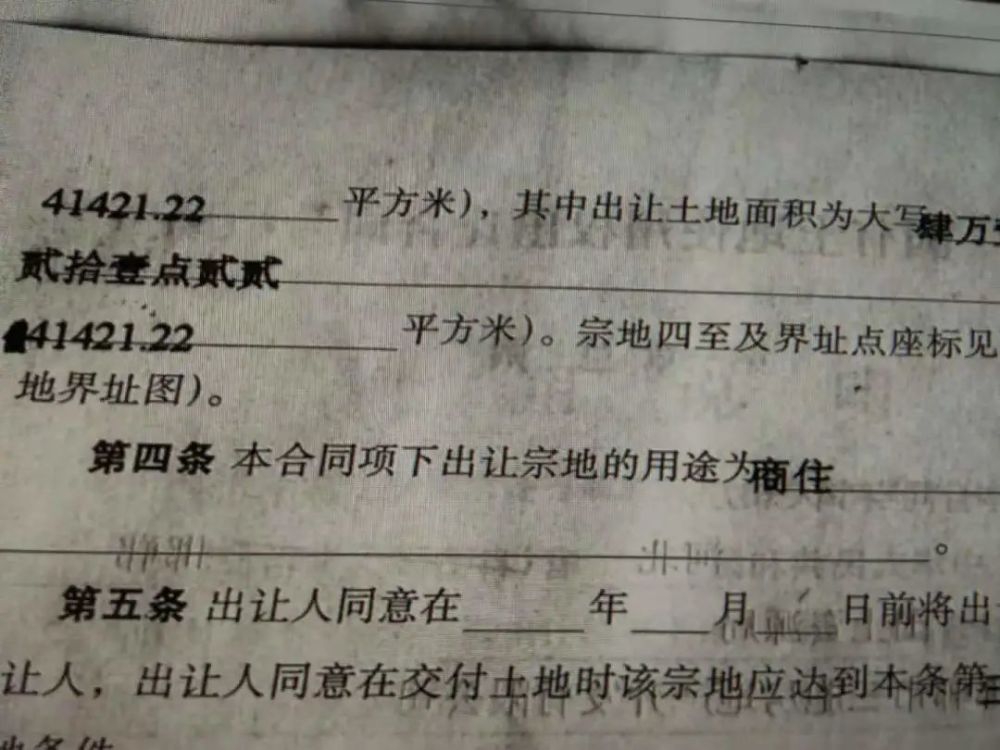 41421.22 平方米），其中出让土地面积为大写肆万
贰拾壹点贰贰
41421.22 平方米）。宗地四至及界址点座标见
地界址图）。
第四条 本合同项下出让宗地的用途为商住
。
第五条 出让人同意在 年 月 日前将出
让人，出让人同意在交付土地时该宗地应达到本条第三